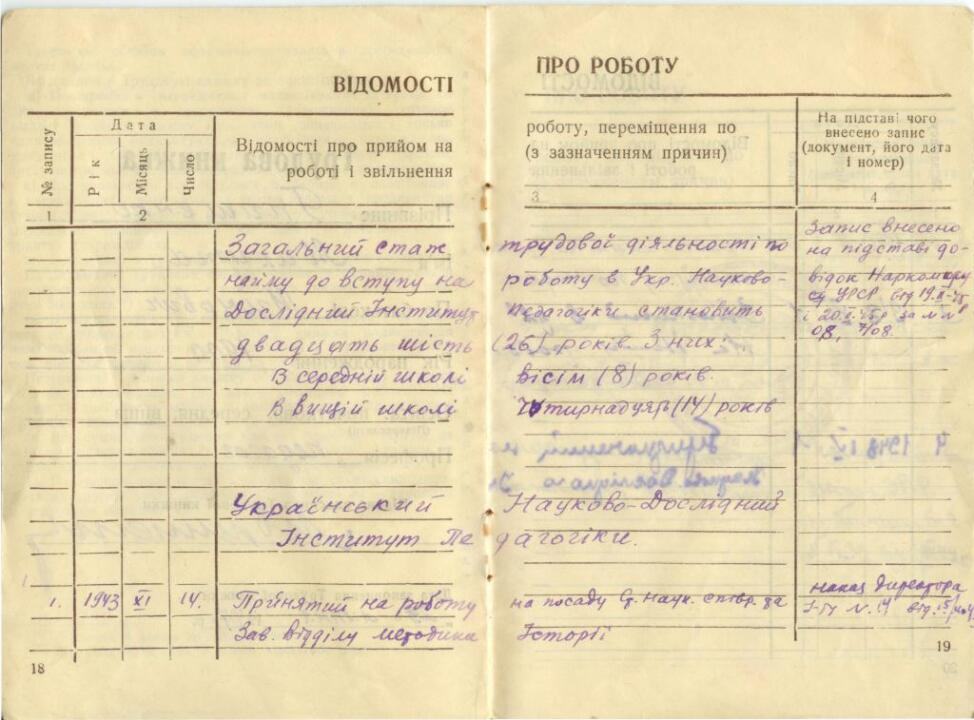 ВІДОМОСТІ
№ запису
Дата
Рік
Місяць
Число
Відомості про прийом на
роботі і звільнення
1
2
Загальний стаж
найму до вступу на
Дослідний Інститут
двадцать шість
В середній школі
В вищій школі
Український
Інститут Пе
1. 1943 XI 14. Прийнятий на роботу
Зав. Відділу методика
18
ПРО РОБОТУ
роботу, переміщення по
(з зазначенням причин)
На підставі чого
внесено запис
(документ, його дата
і номер)
3
4
трудової діяльності по
роботу в Укр. Науково-
педагогіки становить
(26) років. З них:
Вісім (8) років.
Чотирнадцять (14) років
Науково-Дослідний
дагогіки.
на посаду Ст. Наук. співр. та
Історії
Запис внесено
на підставі до-
відок Наркомосу
УРСР від
і за №№
08, 7/08.
наказ Директора
від
19